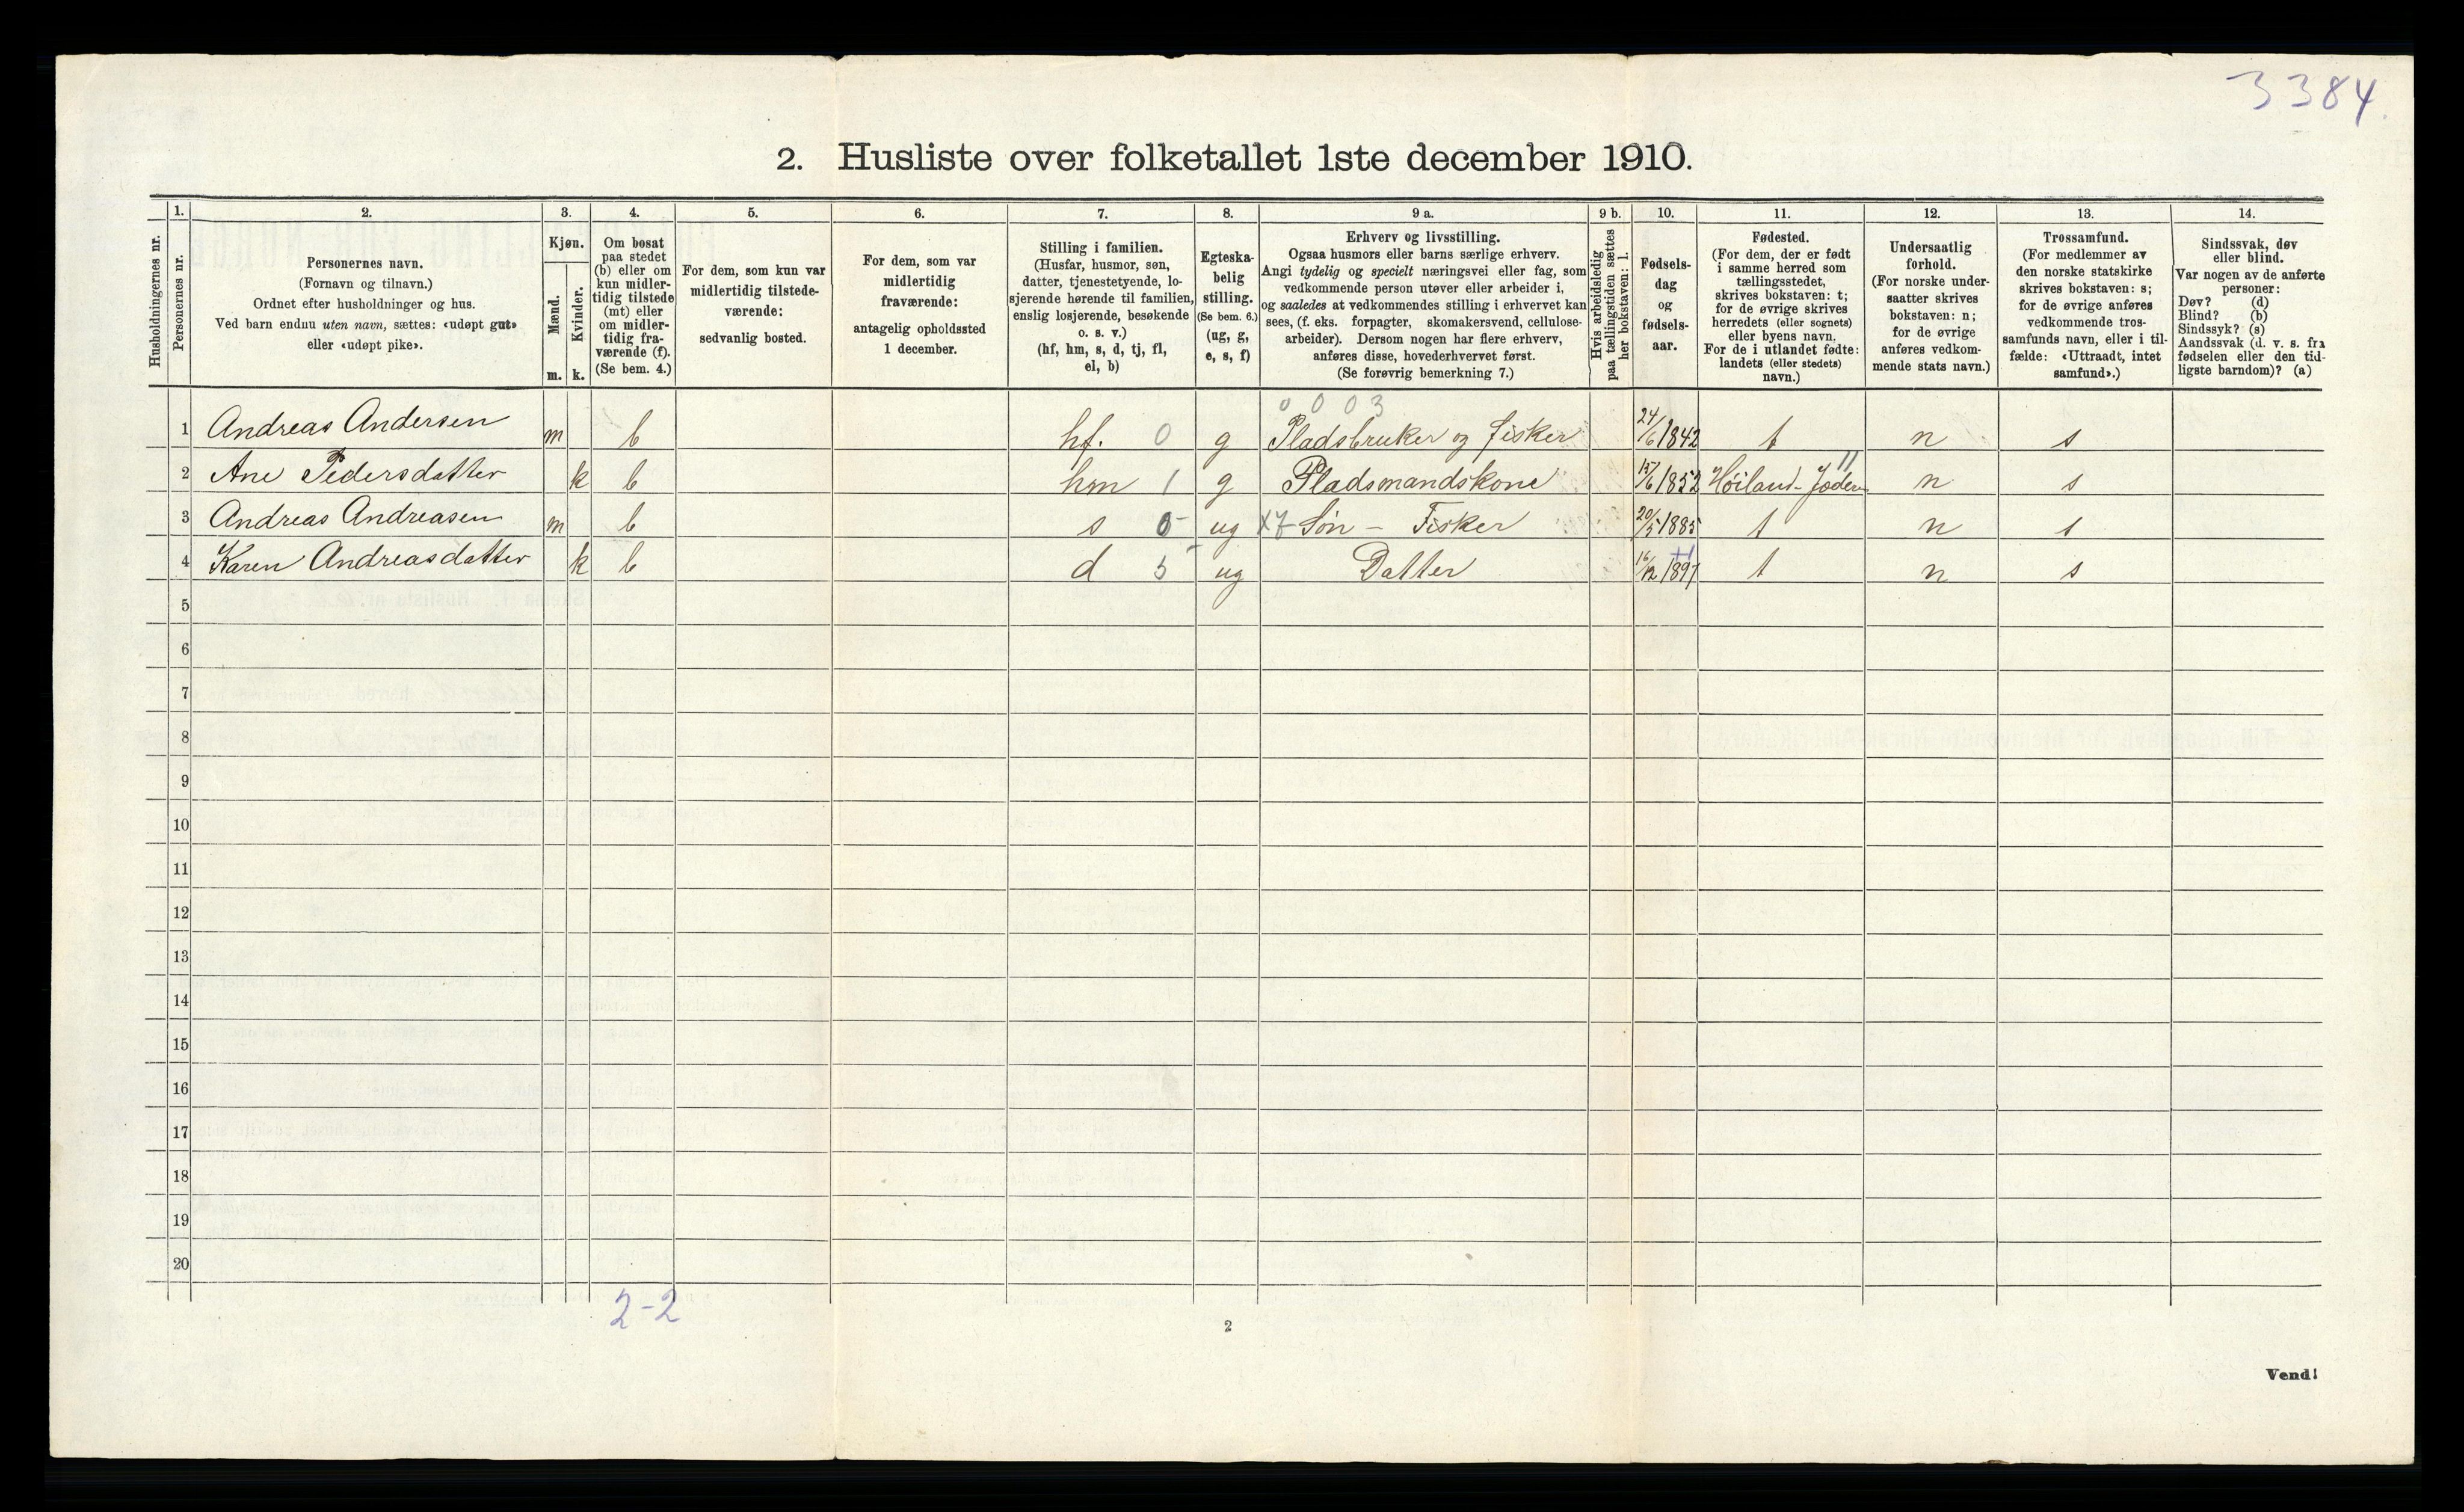 3384
2. Husliste over folketallet 1ste december 1910.
Husholdningernes nr.
1. Personernes nr.
2. Personernes navn.
(Fornavn og tilnavn.)
Ordnet efter husholdninger og hus.
Ved barn endnu uten navn, sættes: «udøpt gut»
eller «udøpt pike».
3. Kjøn.
Mænd. m.
Kvinder. k.
4. Om bosat
paa stedet
(b) eller om
kun midler-
tidig tilstede
(mt) eller
om midler-
tidig fra-
værende (f).
(Se bem. 4.)
5. For dem, som kun var
midlertidig tilstede-
værende:
sedvanlig bosted.
6. For dem, som var
midlertidig
fraværende:
antagelig opholdssted
1 december.
7. Stilling i familien.
(Husfar, husmor, søn,
datter, tjenestetyende, lo-
sjerende hørende til familien,
enslig losjerende, besøkende
o. s. v.)
(hf, hm, s, d, tj, fl,
el, b)
8. Egteska-
belig
stilling.
(Se bem. 6.)
(ug, g,
e, s, f)
9 a. Erhverv og livsstilling.
Ogsaa husmors eller barns særlige erhverv.
Angi tydelig og specielt næringsvei eller fag, som
vedkommende person utøver eller arbeider i,
og saaledes at vedkommendes stilling i erhvervet kan
sees, (f. eks. forpagter, skomakersvend, cellulose-
arbeider). Dersom nogen har flere erhverv,
anføres disse, hovederhvervet først.
(Se forøvrig bemerkning 7.)
9 b. Hvis arbeidsledig
paa tællingstiden sættes
her bokstaven: l.
10. Fødsels-
dag
og
fødsels-
aar.
11. Fødested.
(For dem, der er født
i samme herred som
tællingsstedet,
skrives bokstaven: t;
for de øvrige skrives
herredets (eller sognets)
eller byens navn.
For de i utlandet fødte:
landets (eller stedets)
navn.)
12. Undersaatlig
forhold.
(For norske under-
saatter skrives
bokstaven: n;
for de øvrige
anføres vedkom-
mende stats navn.)
13. Trossamfund.
(For medlemmer av
den norske statskirke
skrives bokstaven: s;
for de øvrige anføres
vedkommende tros-
samfunds navn, eller i til-
fælde: «Uttraadt, intet
samfund».)
14. Sindssvak, døv
eller blind.
Var nogen av de anførte
personer:
Døv? (d)
Blind? (b)
Sindssyk? (s)
Aandssvak (d. v. s. fra
fødselen eller den tid-
ligste barndom)? (a)
0 0 0 3
1 Andreas Andersen m b hf. 0 g Pladsbruker og fisker 24/6 1842 t n s
2 Ane Pedersdatter k b hm 1 g Pladsmandskone 15/6 1852 Höiland - Jæderen 11 n s
3 Andreas Andreasen m b s 5 ug X7 Søn - Fisker 20/5 1885 t n s
4 Karen Andreasdatter k b d 5 ug Datter 16/12 1897 t n s
5
6
7
8
9
10
11
12
13
14
15
16
17
18
19
20
2-2
2
Vend!